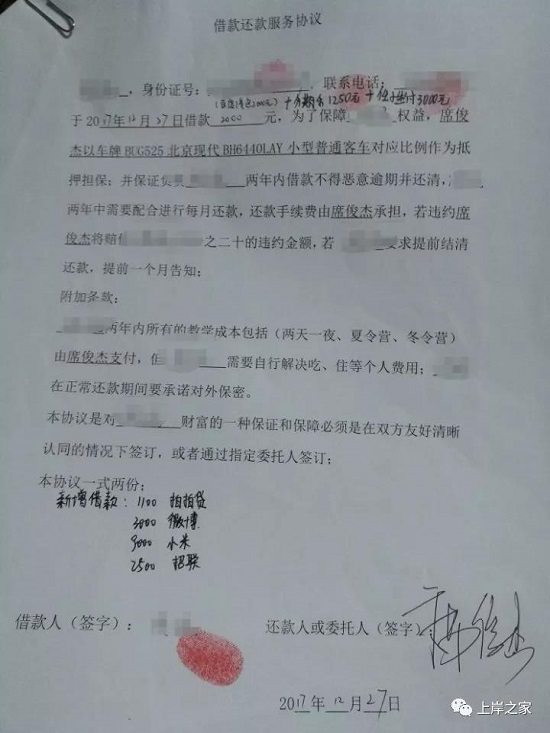 借款还款服务协议
，身份证号： ，联系电话：
+ 1250元 + 3000元
于2017年12月27日借款 2000 元，为了保障 权益，席
俊杰以车牌BUG525北京现代BH6440LAY小型普通客车对应比例作为抵
押担保；并保证负责 两年内借款不得恶意逾期并还清，
两年中需要配合进行每月还款，还款手续费由席俊杰承担，若违约席
俊杰将赔 之二十的违约金额，若 要求提前结清
还款，提前一个月告知；
附加条款：
两年内所有的教学成本包括（两天一夜、夏令营、冬令营）
由席俊杰支付，但 需要自行解决吃、住等个人费用；
在正常还款期间要承诺对外保密。
本协议是对 财富的一种保证和保障必须是在双方友好清晰
认同的情况下签订，或者通过指定委托人签订；
本协议一式两份；
新增借款：1100 拍拍贷
3000 微博
9000 小米
2500 招联
借款人（签字）： 还款人或委托人（签字）
2017年12月27日
上岸之家